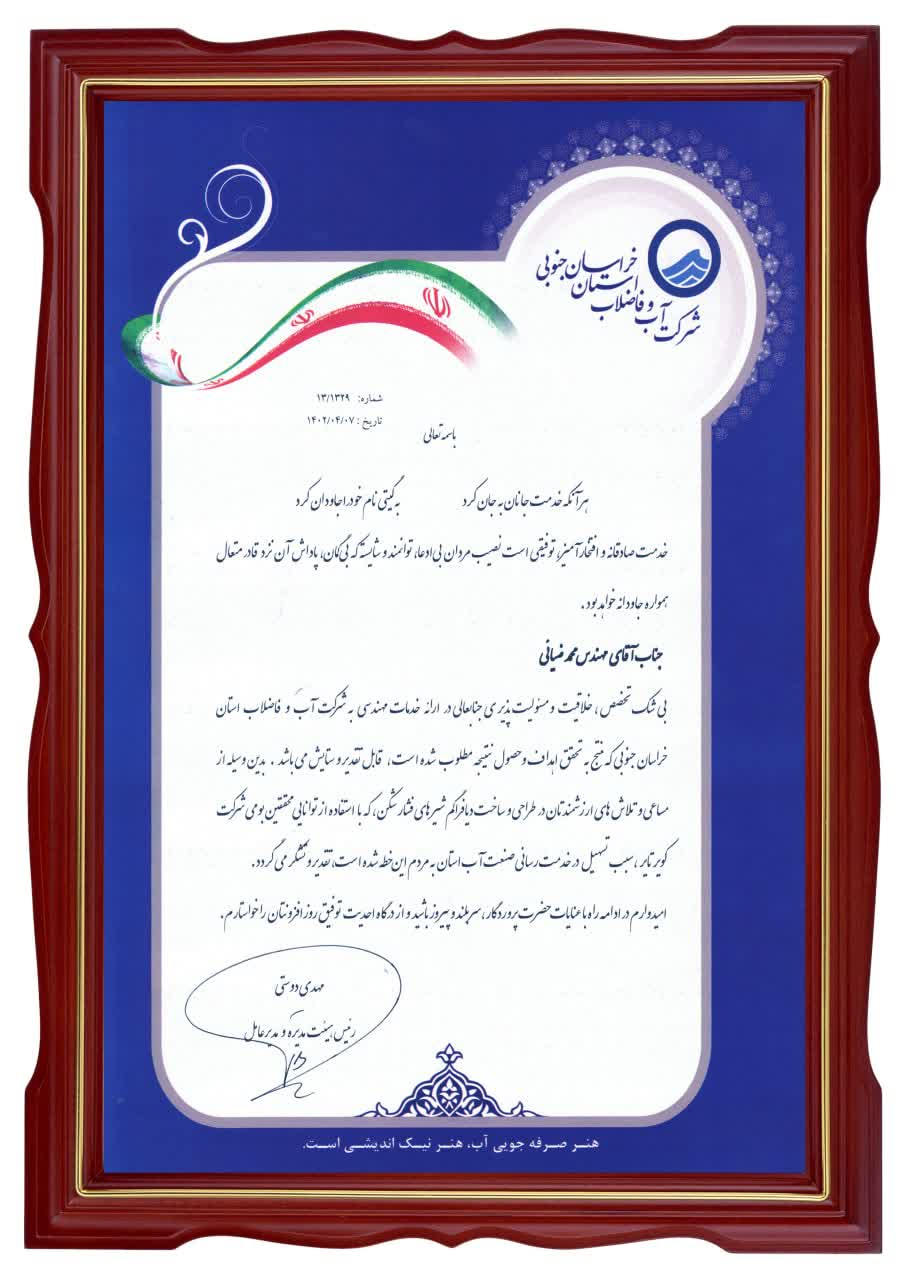 شرکت آب و فاضلاب
استان
خراسان جنوبی
شماره: ۱۳/۱۳۲۹
تاریخ : ۱۴۰۲/۰۴/۰۷
باسمه تعالی
هر آنکه خدمت جانان به جان کرد به گیتی نام خود را جاودان کرد
خدمت صادقانه و افتخارآمیز، توفیقی است نصیب مردان بی ادعا، توانمند و شایسته که بی گمان، پاداش آن نزد قادر متعال
همواره جاودانه خواهد بود .
جناب آقای مهندس محمد ضیائی
بی شک تخصص ، خلاقیت و مسئولیت پذیری جنابعالی در ارائه خدمات مهندسی به شرکت آب و فاضلاب استان
خراسان جنوبی که منتج به تحقق اهداف و حصول نتیجه مطلوب شده است، قابل تقدیر و ستایش می باشد . بدین وسیله از
مساعی و تلاش های ارزشمندتان در طراحی و ساخت دیافراگم شیرهای فشار شکن، که با استفاده از توانایی محققین بومی شرکت
کویر تایر ، سبب تسهیل در خدمت رسانی صنعت آب استان به مردم این خطه شده است، تقدیر و تشکر می گردد.
امیدوارم در ادامه راه با عنایات حضرت پروردگار، سربلند و پیروز باشید و از درگاه احدیت توفیق روز افزونتان را خواستارم .
مهدی دوستی
رئیس هیئت مدیره و مدیرعامل
هنر صرفه جویی آب، هنر نیک اندیشی است.